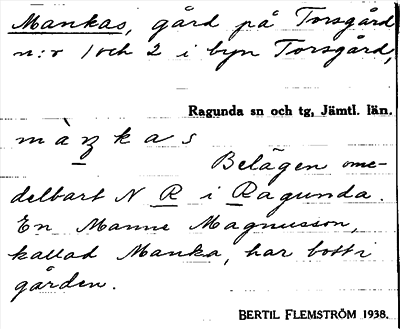 Mankas, gård på Torsgård
n:r 1 och 2 i byn Torsgård,
Ragunda sn och tg, Jämtl. län.
màṉkas
Belägen ome-
delbart N R i Ragunda.
En Manne Magnusson,
kallad Manka, har bott i
gården.
BERTIL FLEMSTRÖM 1938.